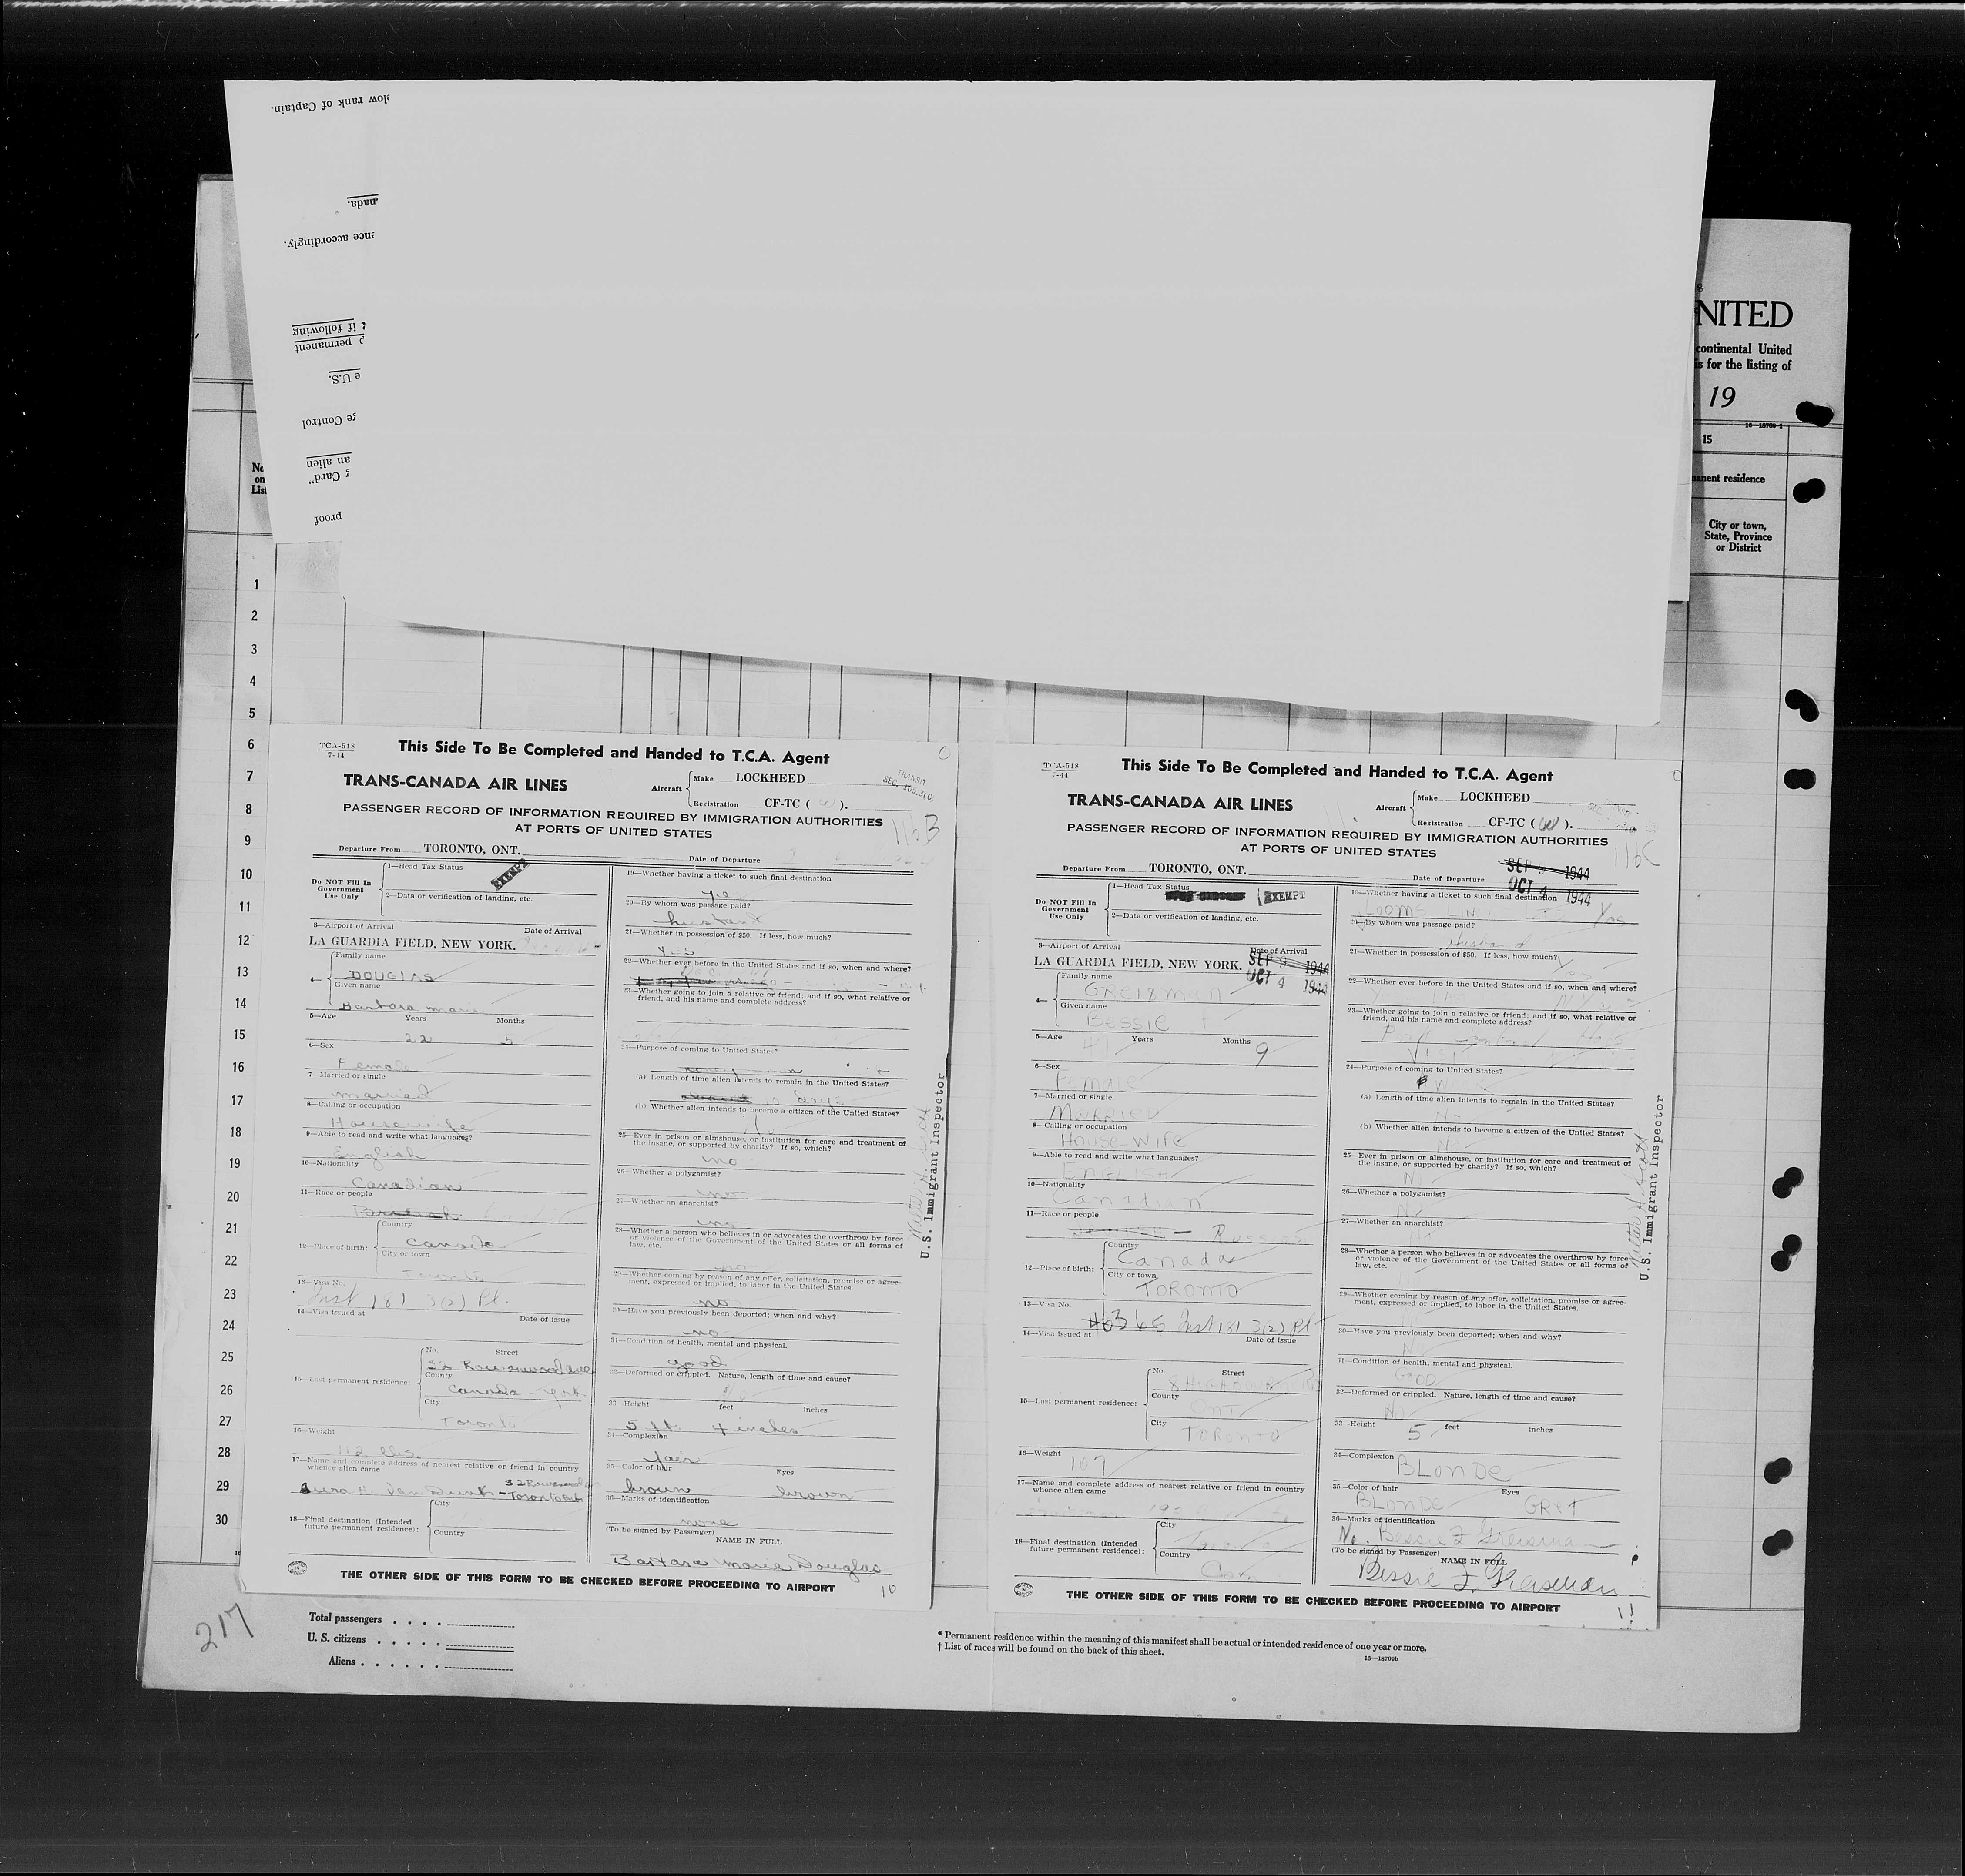 low rank of Captain.
nada.
ence accordingly.
if following
permanent
e U.S.
ge Control
an alien
Card"
proof
NITED
continental United
is for the listing of
19
16—18709-1
15
manent residence
City or town,
State, Province
or District
No
on
List
1
2
3
4
5
6
7
8
9
10
11
12
13
14
15
16
17
18
19
20
21
22
23
24
25
26
27
28
29
30
TCA-518
7-44
This Side To Be Completed and Handed to T.C.A. Agent
TRANS-CANADA AIR LINES
Aircraft
Make LOCKHEED
Registration CF-TC ( W ).
TRANSIT
PASSENGER RECORD OF INFORMATION REQUIRED BY IMMIGRATION AUTHORITIES
AT PORTS OF UNITED STATES
116B
Departure From TORONTO, ONT.
Date of Departure
Do NOT Fill In
Government
Use Only
1—Head Tax Status
EXEMPT
2—Data or verification of landing, etc.
3—Airport of Arrival Date of Arrival
LA GUARDIA FIELD, NEW YORK.
4—
Family name
DOUGLAS
Given name
Barbara marie
5—Age Years Months
22 5
6—Sex
Female
7—Married or single
married
8—Calling or occupation
Housewife
9—Able to read and write what languages?
English
10—Nationality
Canadian
11—Race or people
British
12—Place of birth:
Country
Canada
City or town
Toronto
13—Visa No.
Inst 181 3(2) Pl.
14—Visa issued at Date of issue
15—Last permanent residence:
No. Street
32
County
Canada - York
City
Toronto
16—Weight
112 lbs.
17—Name and complete address of nearest relative or friend in country
whence alien came
18—Final destination (Intended
future permanent residence):
City
Country
19—Whether having a ticket to such final destination
yes
20—By whom was passage paid?
husband
21—Whether in possession of $50. If less, how much?
Yes
22—Whether ever before in the United States and if so, when and where?
23—Whether going to join a relative or friend; and if so, what relative or
friend, and his name and complete address?
24—Purpose of coming to United States?
(a) Length of time alien intends to remain in the United States?
10 days
(b) Whether alien intends to become a citizen of the United States?
No
25—Ever in prison or almshouse, or institution for care and treatment of
the insane, or supported by charity? If so, which?
no
26—Whether a polygamist?
no
27—Whether an anarchist?
no
28—Whether a person who believes in or advocates the overthrow by force
or violence of the Government of the United States or all forms of
law, etc.
no
29—Whether coming by reason of any offer, solicitation, promise or agree-
ment, expressed or implied, to labor in the United States.
no
30—Have you previously been deported; when and why?
no
31—Condition of health, mental and physical.
good
32—Deformed or crippled. Nature, length of time and cause?
No
33—Height feet inches
5 ft. 4 inches
34—Complexion
fair
35—Color of hair Eyes
brown brown
36—Marks of identification
none
(To be signed by Passenger)
NAME IN FULL
Barbara Marie Douglas
THE OTHER SIDE OF THIS FORM TO BE CHECKED BEFORE PROCEEDING TO AIRPORT
10
U.S. Immigrant Inspector
TCA-518
7-44
This Side To Be Completed and Handed to T.C.A. Agent
TRANS-CANADA AIR LINES
Aircraft
Make LOCKHEED
Registration CF-TC ( W ).
PASSENGER RECORD OF INFORMATION REQUIRED BY IMMIGRATION AUTHORITIES
AT PORTS OF UNITED STATES
116C
Departure From TORONTO, ONT.
Date of Departure
SEP 9 1944
OCT 4 1944
Do NOT Fill In
Government
Use Only
1—Head Tax Status
EXEMPT
2—Data or verification of landing, etc.
3—Airport of Arrival Date of Arrival
LA GUARDIA FIELD, NEW YORK.
SEP 9 1944
OCT 4 1944
4—
Family name
Greisman
Given name
Bessie F
5—Age Years Months
41 9
6—Sex
Female
7—Married or single
MARRIED
8—Calling or occupation
HOUSE-WIFE
9—Able to read and write what languages?
ENGLISH
10—Nationality
Canadian
11—Race or people
Russian
12—Place of birth:
Country
Canada
City or town
TORONTO
13—Visa No.
Inst 181 3(2) Pl
14—Visa issued at Date of issue
15—Last permanent residence:
No. Street
County
ONT
City
TORONTO
16—Weight
107
17—Name and complete address of nearest relative or friend in country
whence alien came
18—Final destination (Intended
future permanent residence):
City
Toronto
Country
Can
19—Whether having a ticket to such final destination
Yes
20—By whom was passage paid?
Husband
21—Whether in possession of $50. If less, how much?
Yes
22—Whether ever before in the United States and if so, when and where?
23—Whether going to join a relative or friend; and if so, what relative or
friend, and his name and complete address?
VISIT
24—Purpose of coming to United States?
(a) Length of time alien intends to remain in the United States?
No
(b) Whether alien intends to become a citizen of the United States?
No
25—Ever in prison or almshouse, or institution for care and treatment of
the insane, or supported by charity? If so, which?
No
26—Whether a polygamist?
No
27—Whether an anarchist?
No
28—Whether a person who believes in or advocates the overthrow by force
or violence of the Government of the United States or all forms of
law, etc.
29—Whether coming by reason of any offer, solicitation, promise or agree-
ment, expressed or implied, to labor in the United States.
30—Have you previously been deported; when and why?
No
31—Condition of health, mental and physical.
GOOD
32—Deformed or crippled. Nature, length of time and cause?
No
33—Height feet inches
5
34—Complexion
BLONDE
35—Color of hair Eyes
BLONDE GREY
36—Marks of identification
No. Bessie F Greisman
(To be signed by Passenger)
NAME IN FULL
Bessie F. Greisman
THE OTHER SIDE OF THIS FORM TO BE CHECKED BEFORE PROCEEDING TO AIRPORT
11
U.S. Immigrant Inspector
217
Total passengers . . . .
U. S. citizens . . . . .
Aliens . . . . . .
* Permanent residence within the meaning of this manifest shall be actual or intended residence of one year or more.
† List of races will be found on the back of this sheet.
16—18709b